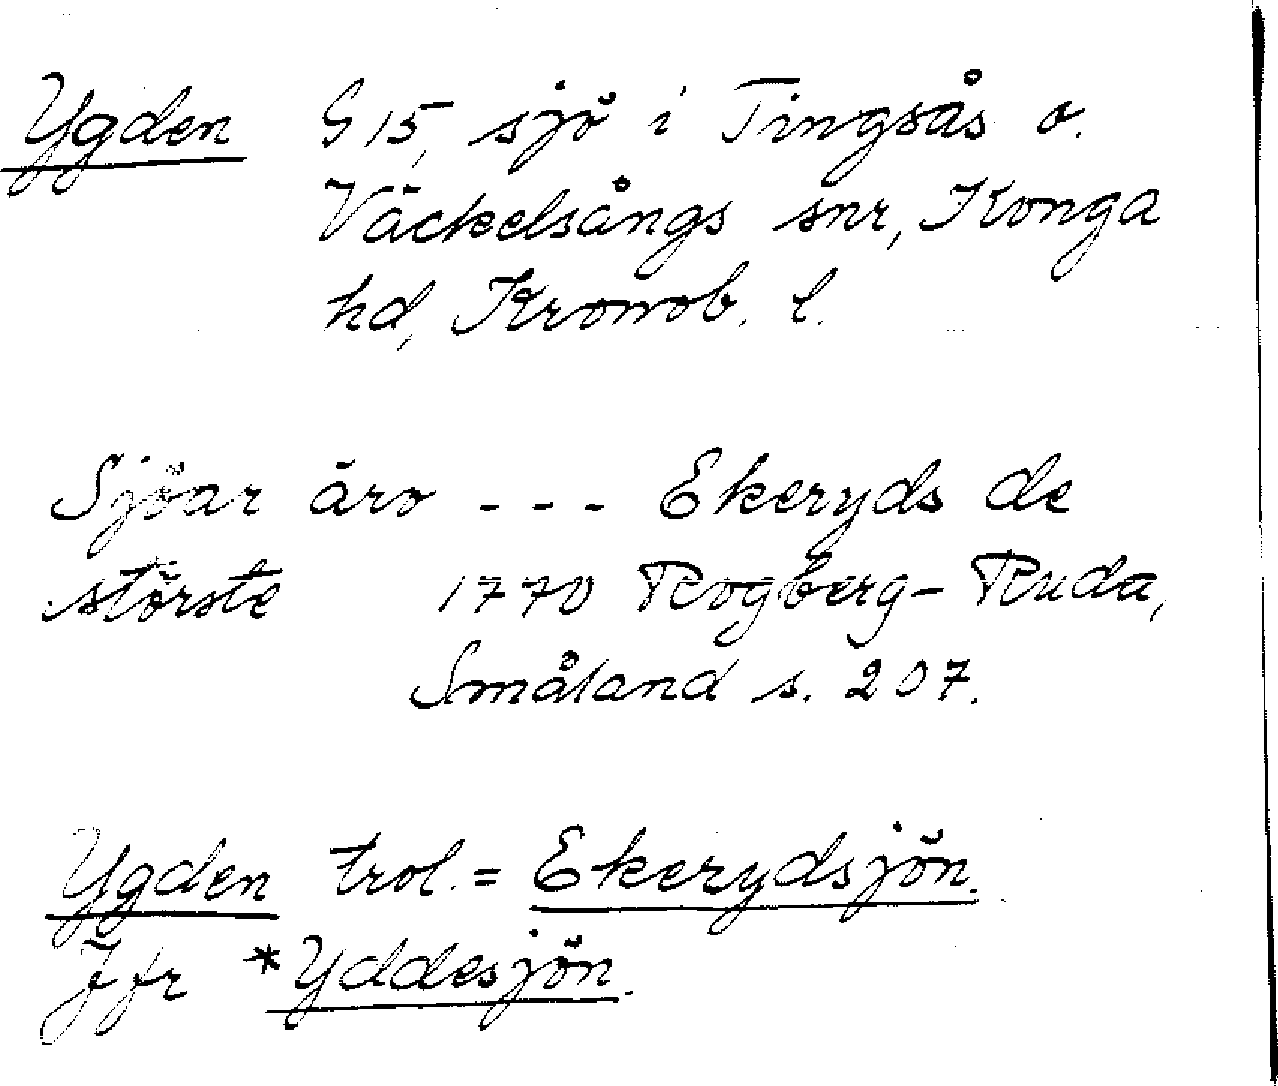 Ygden G 15, sjö i Tingsås o.
Väckelsångs snr, Konga
hd, Kronob. l.
Sjöar äro - - - Ekeryds de
störste 1770 Rogberg-Ruda,
Småland s. 207.
Ygden trol. = Ekerydsjön.
Jfr *Yddesjön.